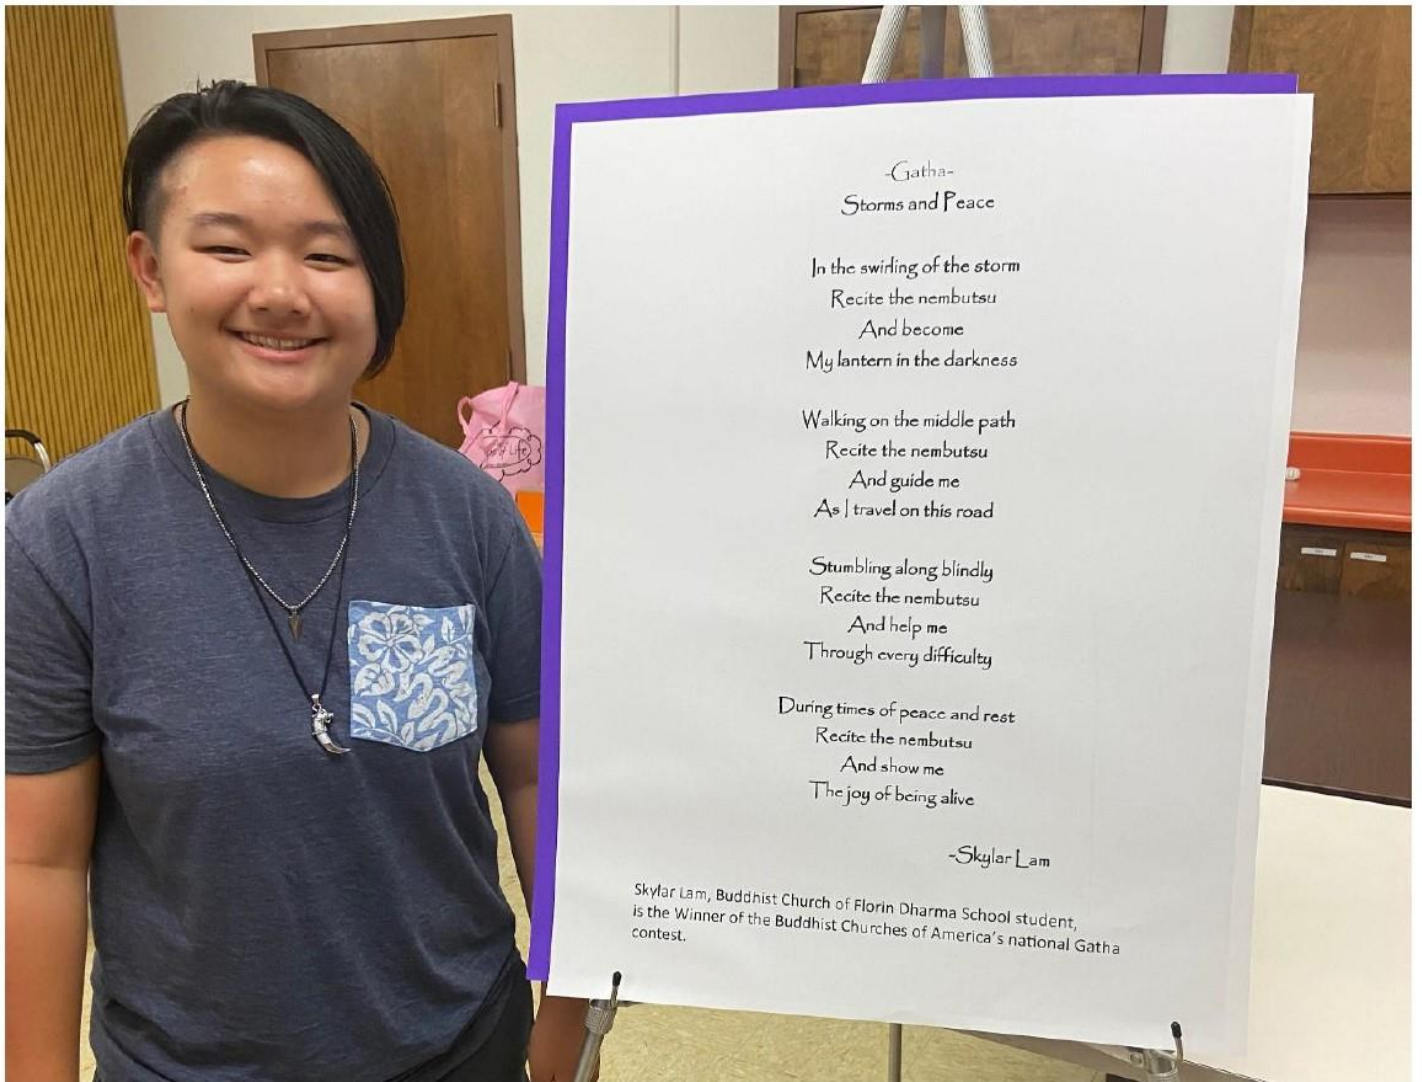 -Gatha-
Storms and Peace
In the swirling of the storm
Recite the nembutsu
And become
My lantern in the darkness
Walking on the middle path
Recite the nembutsu
And guide me
As I travel on this road
Stumbling along blindly
Recite the nembutsu
And help me
Through every difficulty
During times of peace and rest
Recite the nembutsu
And show me
The joy of being alive
-Skylar Lam
Skylar Lam, Buddhist Church of Florin Dharma School student,
is the Winner of the Buddhist Churches of America's national Gatha
contest.
Life